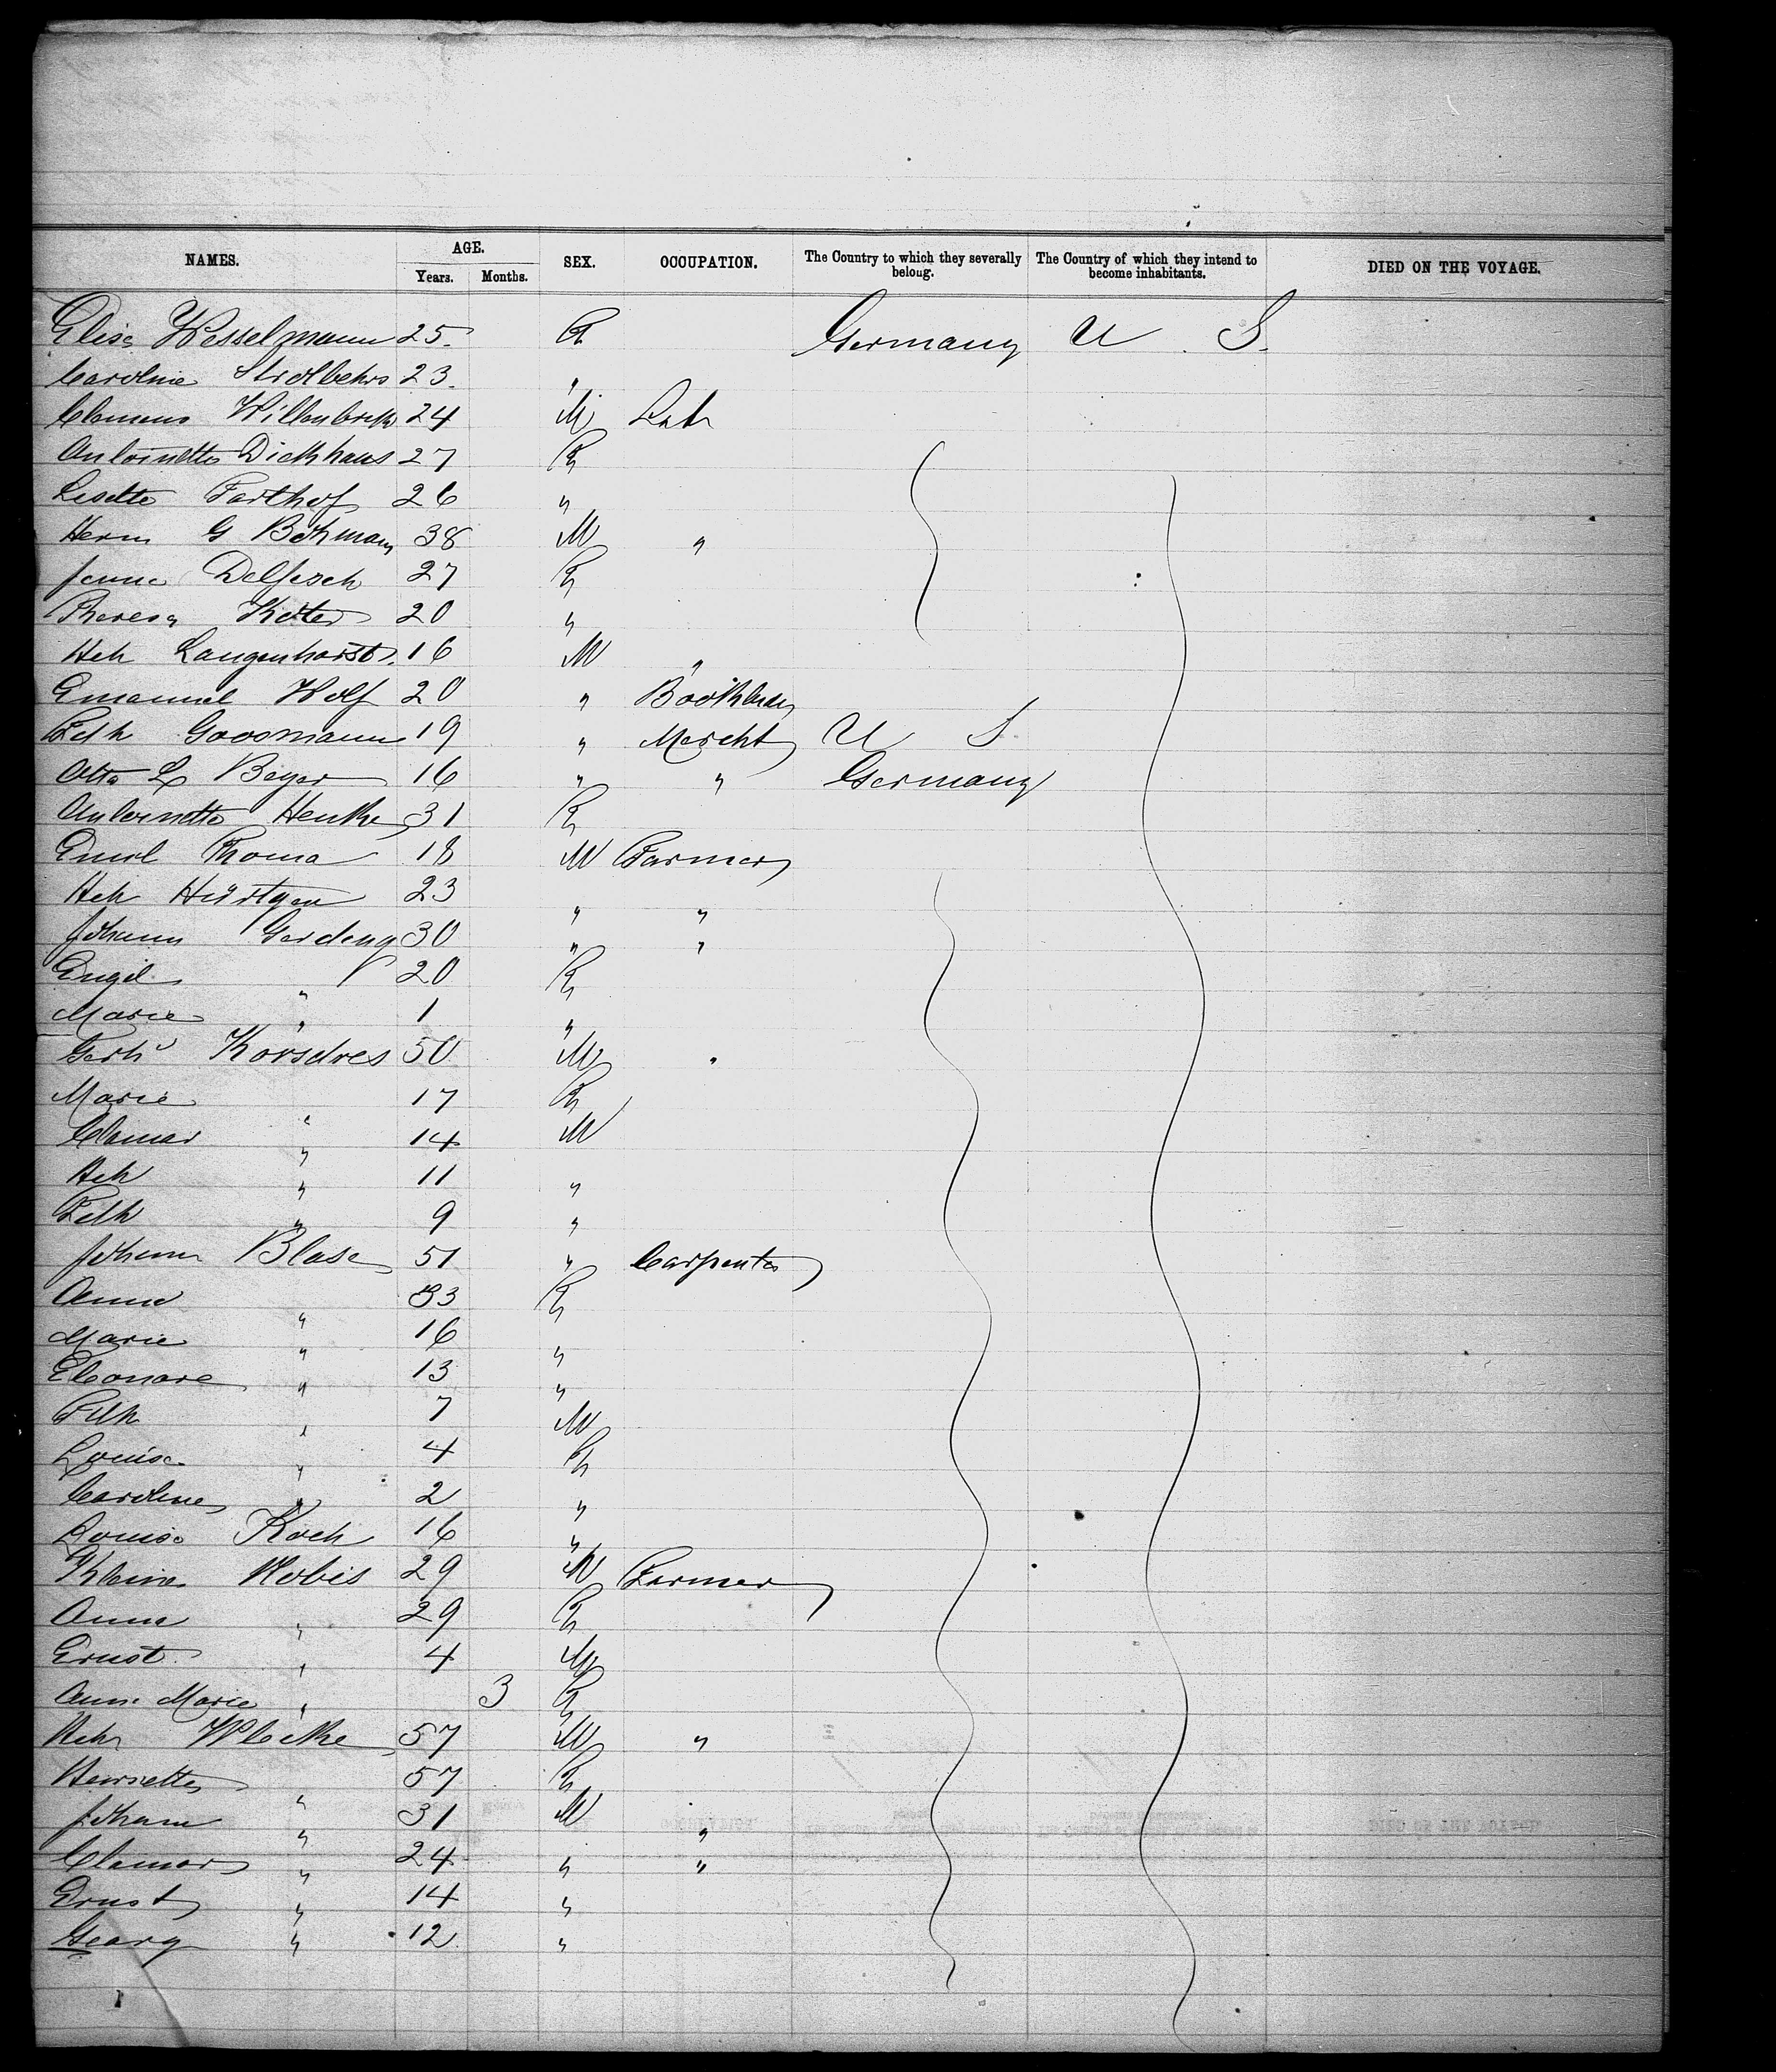 NAMES. AGE. Years. Months. SEX. OCCUPATION. The Country to which they severally belong. The Country of which they intend to become inhabitants. DIED ON THE VOYAGE.
Elise Wesselmann 25. F Germany U. S.
Caroline 23. "
Clemens 24 M Lab
Antoinette Dickhaus 27 F
Lisette Farthof 26 "
Herm G 38 M "
27 F
Theresa Koter 20 "
Hch Langenhorst. 16 M "
Emanuel Wolf 20 "
Fdk 19 " Mercht U S.
Otto L Beyer 16 " " Germany
Antoinette Henke 31 F
Emil Thoma 18 M Farmer
Hch Hürtgen 23 " "
Johann 30 " "
Engel " 20 F
Marie " 1 "
Gerh 50 M "
Marie " 17 F
Clamor " 14 M
Hch " 11 "
Fdk " 9 "
Johann Blase 51 " Carpenter
Anna " 33 F
Marie " 16 "
Eleonore " 13 "
Fdk " 7 M
Louise " 4 F
Caroline " 2 "
Louise Koch 16 "
29 M Farmer
Anna " 29 F
Ernst " 4 M
Ann Marie " 3 F
Hch 57 M "
Henriette " 57 F
Johann " 31 M "
Clamor " 24 " "
Ernst " 14 "
Georg " 12. "